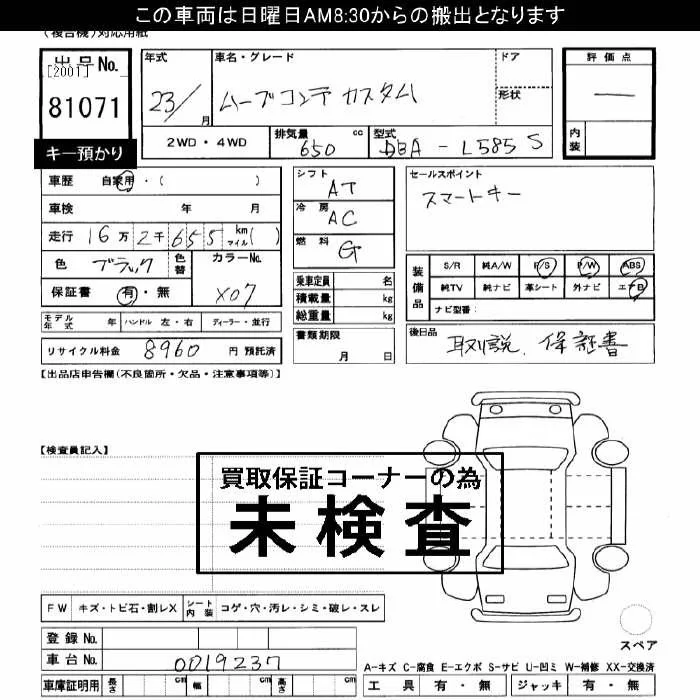 この車両は日曜日AM8:30からの搬出となります
(複合機)対応用紙
出品No. [2001] 81071
キー預かり
年式 23/ 月
車名・グレード ムーブコンテ カスタム
ドア
形状
評価点 —
内装
2WD・4WD
排気量 cc 650
型式 DBA - L585S
車歴 自家用・( )
車検 年 月
走行 16万2千655 km マイル( )
色 ブラック 色替 カラーNo. X07
保証書 有・無
モデル年式 年 ハンドル 左・右 ディーラー・並行
リサイクル料金 8960 円 預託済
シフト AT
冷房 AC
燃料 G
乗車定員 名
積載量 kg
総重量 kg
書類期限 月 日
セールスポイント
スマートキー
装備品 S/R 純A/W P/S P/W ABS
純TV 純ナビ 革シート 外ナビ エアB
ナビ型番:
後日品 取説、保証書
【出品店申告欄(不良箇所・欠品・注意事項等)】
【検査員記入】
買取保証コーナーの為
未検査
FW キズ・トビ石・割レX シート内装 コゲ・穴・汚レ・シミ・破レ・スレ
登録No.
車台No. 0019237
車庫証明用 長さ cm 幅 cm 高さ cm
スペア
A-キズ C-腐食 E-エクボ S-サビ U-凹ミ W-補修 XX-交換済
工具 有・無 ジャッキ 有・無